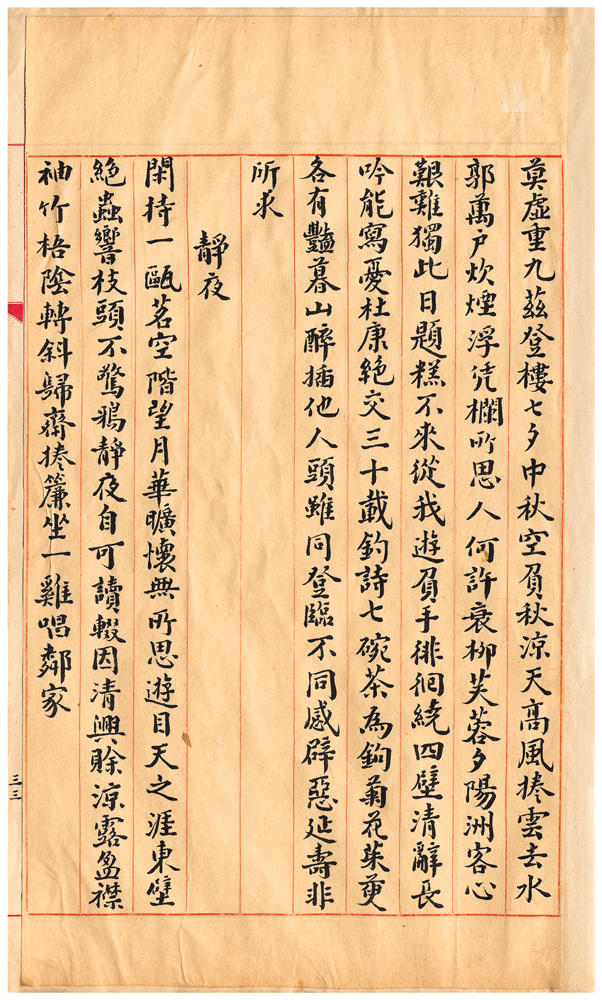 莫虛重九茲登樓七夕中秋空負秋涼天高風捲雲去水
郭萬戶炊煙浮凭欄所思人何許衰柳芙蓉夕陽洲客心
艱難獨此日題糕不來從我遊負手徘徊繞四壁清辭長
吟能寫憂杜康絶交三十載釣詩七碗茶為鉤菊花茱萸
各有豔暮山醉插他人頭雖同登臨不同感辟惡延壽非
所求
靜夜
閑持一甌茗空階望月華曠懷無所思遊目天之涯東壁
絕蟲響枝頭不驚鴉靜夜自可讀輟因清興賒涼露盈襟
袖竹梧陰轉斜歸齋捲簾坐一雞唱鄰家
三三